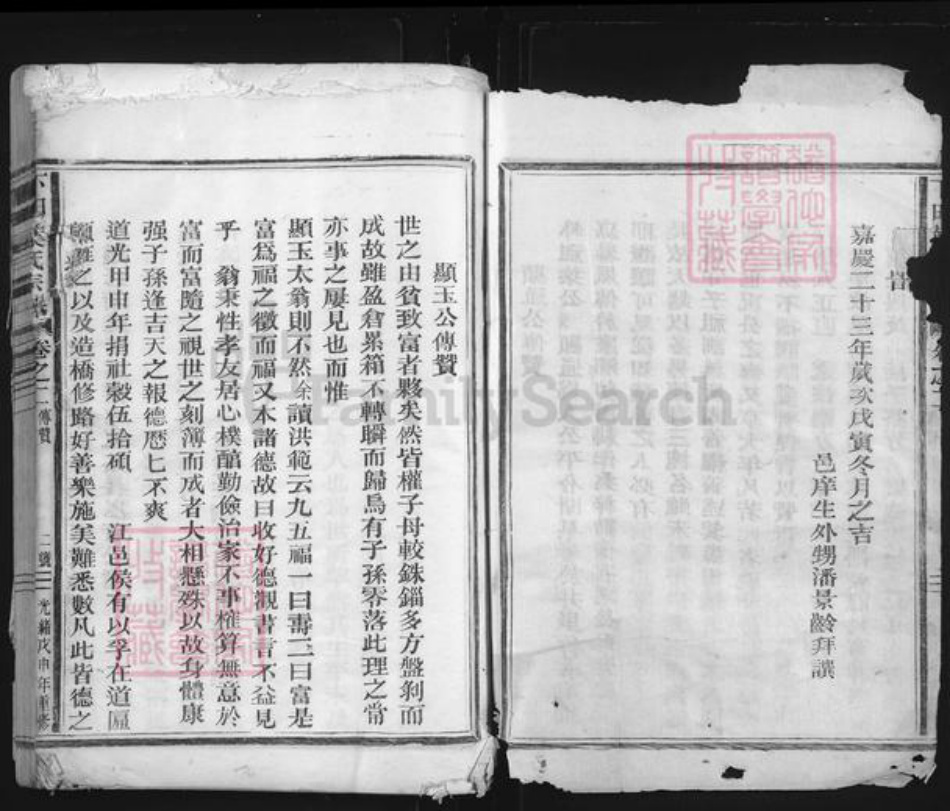 嘉慶二十三年歲次戊寅冬月之吉
邑庠生外甥潘景齡拜譔
顯玉公傳贊
世之由貧致富者夥矣然皆權子母較銖錙多方盤剝而
成故雖盈倉累箱不轉瞬而歸烏有子孫零落此理之常
亦事之屢見也而惟
顯玉太翁則不然余讀洪範云九五福一曰壽二曰富是
富爲福之徵而福又本諸德故曰收好德觀書言不益見
乎 翁秉性孝友居心樸醕勤儉治家不事榷算無意於
富而富隨之視世之刻薄而成者大相懸殊以故身體康
强子孫逢吉天之報德歷匕不爽
道光甲申年捐社穀伍拾碩 江邑侯有以孚在道匾
額旌之以及造橋修路好善樂施美難悉數凡此皆德之
氏宗譜 卷之二 傳贊 二號 光緒戊申年重修
FamilySearch